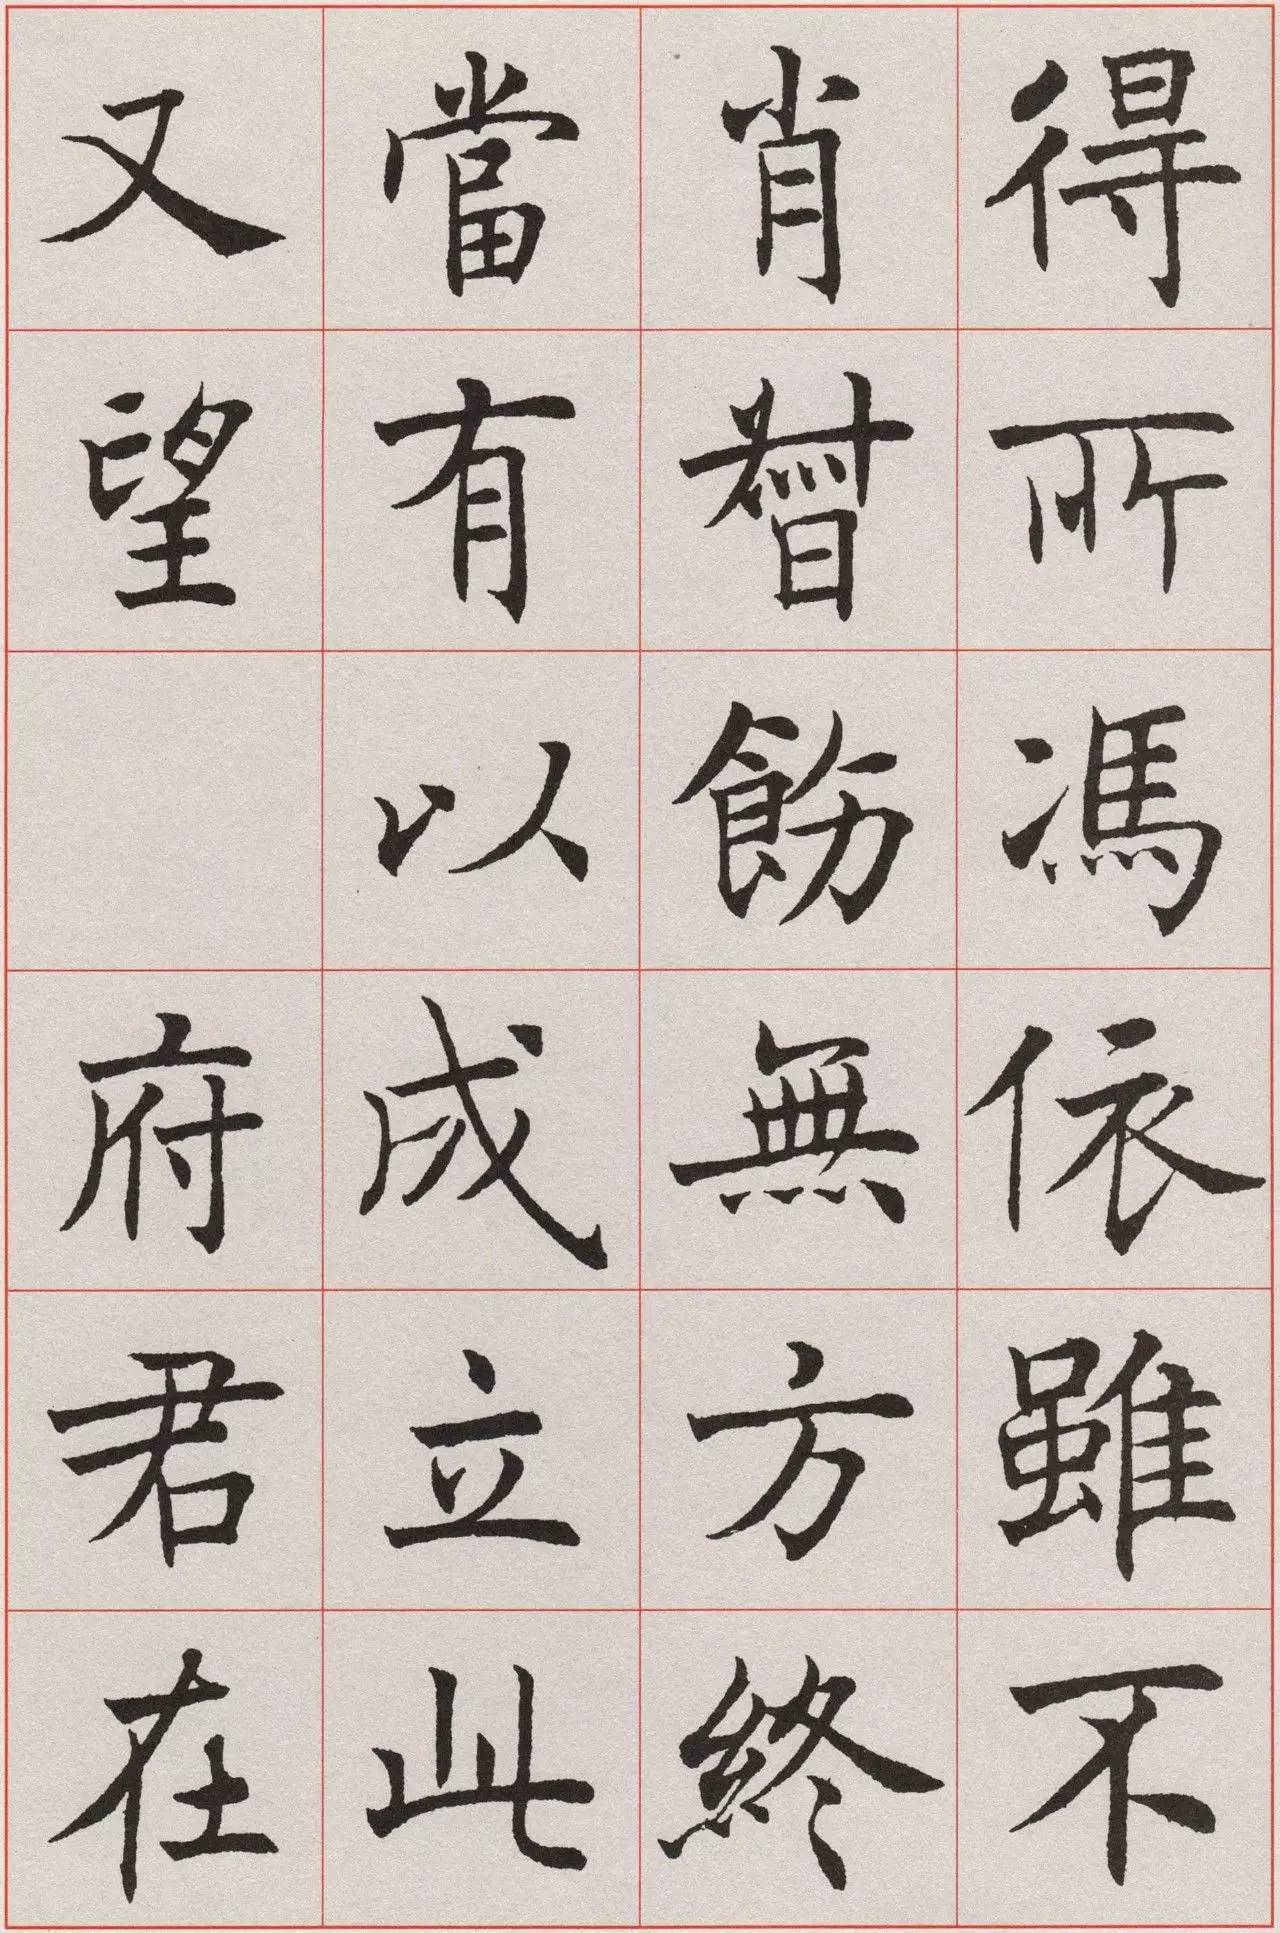 得所馮依雖不
肖督飭無方終
當有以成立此
又望 府君在